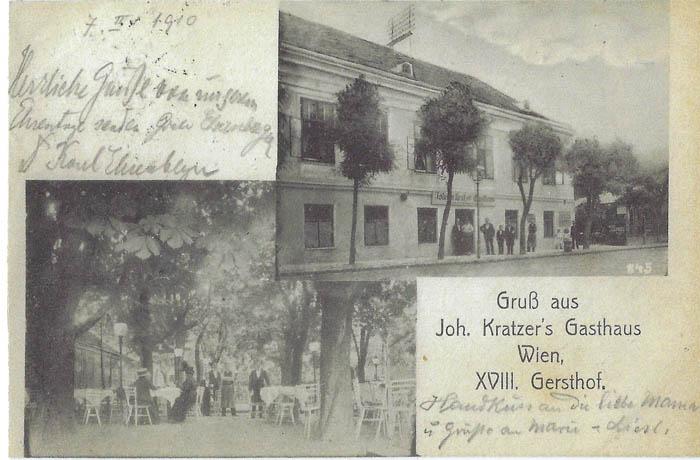 7. II. 1910
Herzliche Grüße von unserem
senden
Karl
Joh. Kratzer's Gasthaus
845
Gruß aus
Joh. Kratzer's Gasthaus
Wien,
XVIII. Gersthof.
Handkuss an die liebe Mama
u Grüße an Marie - Liesl.